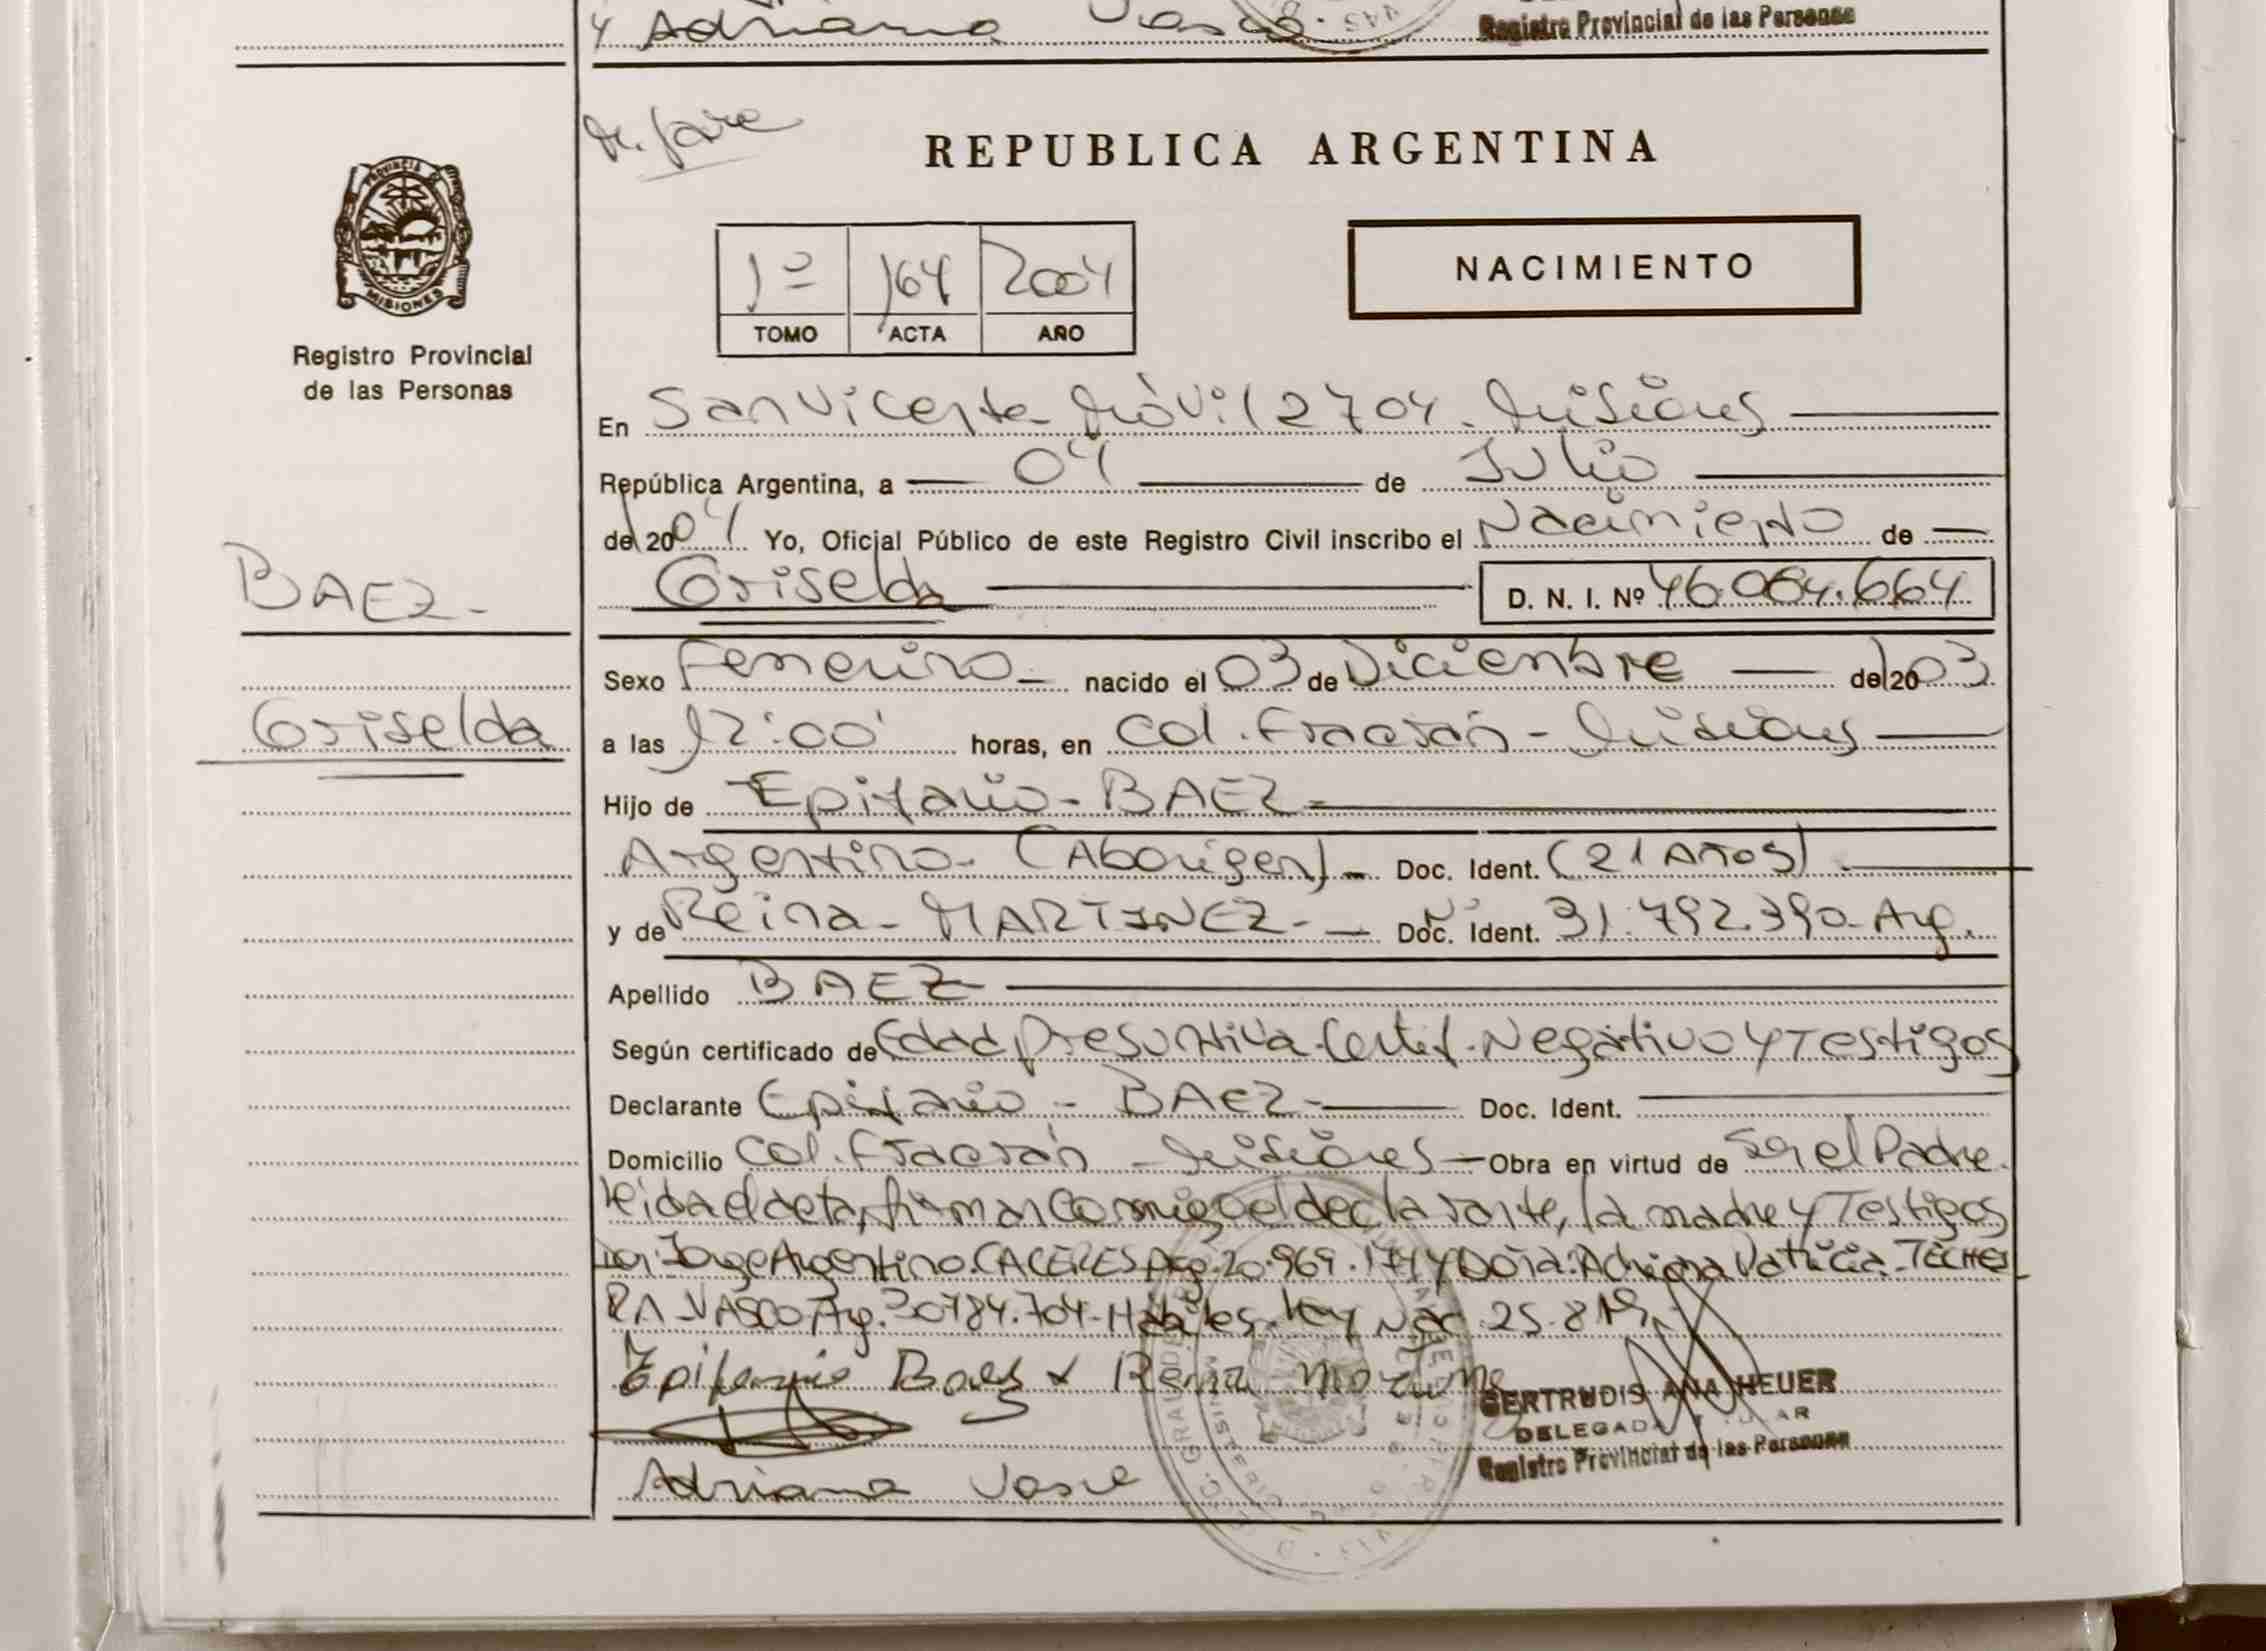 Y Adriana Vasco
Registro Provincial de las Personas
REPUBLICA ARGENTINA
PROVINCIA DE
MISIONES
Registro Provincial
de las Personas
1º 164 2004
TOMO ACTA AÑO
NACIMIENTO
En San Vicente Móvil 2704. Misiones
República Argentina, a 04 de Julio
del 2004 Yo, Oficial Público de este Registro Civil inscribo el Nacimiento de
Griselda D. N. I. Nº 46.084.664
BAEZ-
Griselda
Sexo Femenino- nacido el 03 de Diciembre del 2003
a las 12:00' horas, en Col. Fracrán - Misiones
Hijo de Epifanio - BAEZ-
Argentino- (Aborigen)- Doc. Ident. (21 Años)
y de Reina - MARTINEZ- Doc. Ident. 31.792.390- Arg.
Apellido BAEZ
Según certificado de Edad presuntiva-Certif. Negativo y Testigos
Declarante Epifanio - BAEZ- Doc. Ident.
Domicilio Col. Fracrán - Misiones - Obra en virtud de Ser el Padre.
leida el acta, firman conmigo el declarante, la madre y Testigos
Jorge Argentino. CACERES Arg. 20.969.174 y Doña: Adriana Patricia
VASCO Arg. 30784.704- Hábiles. Ley Nac. 25.819.
Epifanio Baes x Reina
GERTRUDIS ANA HEUER
DELEGADA
Registro Provincial de las Personas
Adriana Vasco